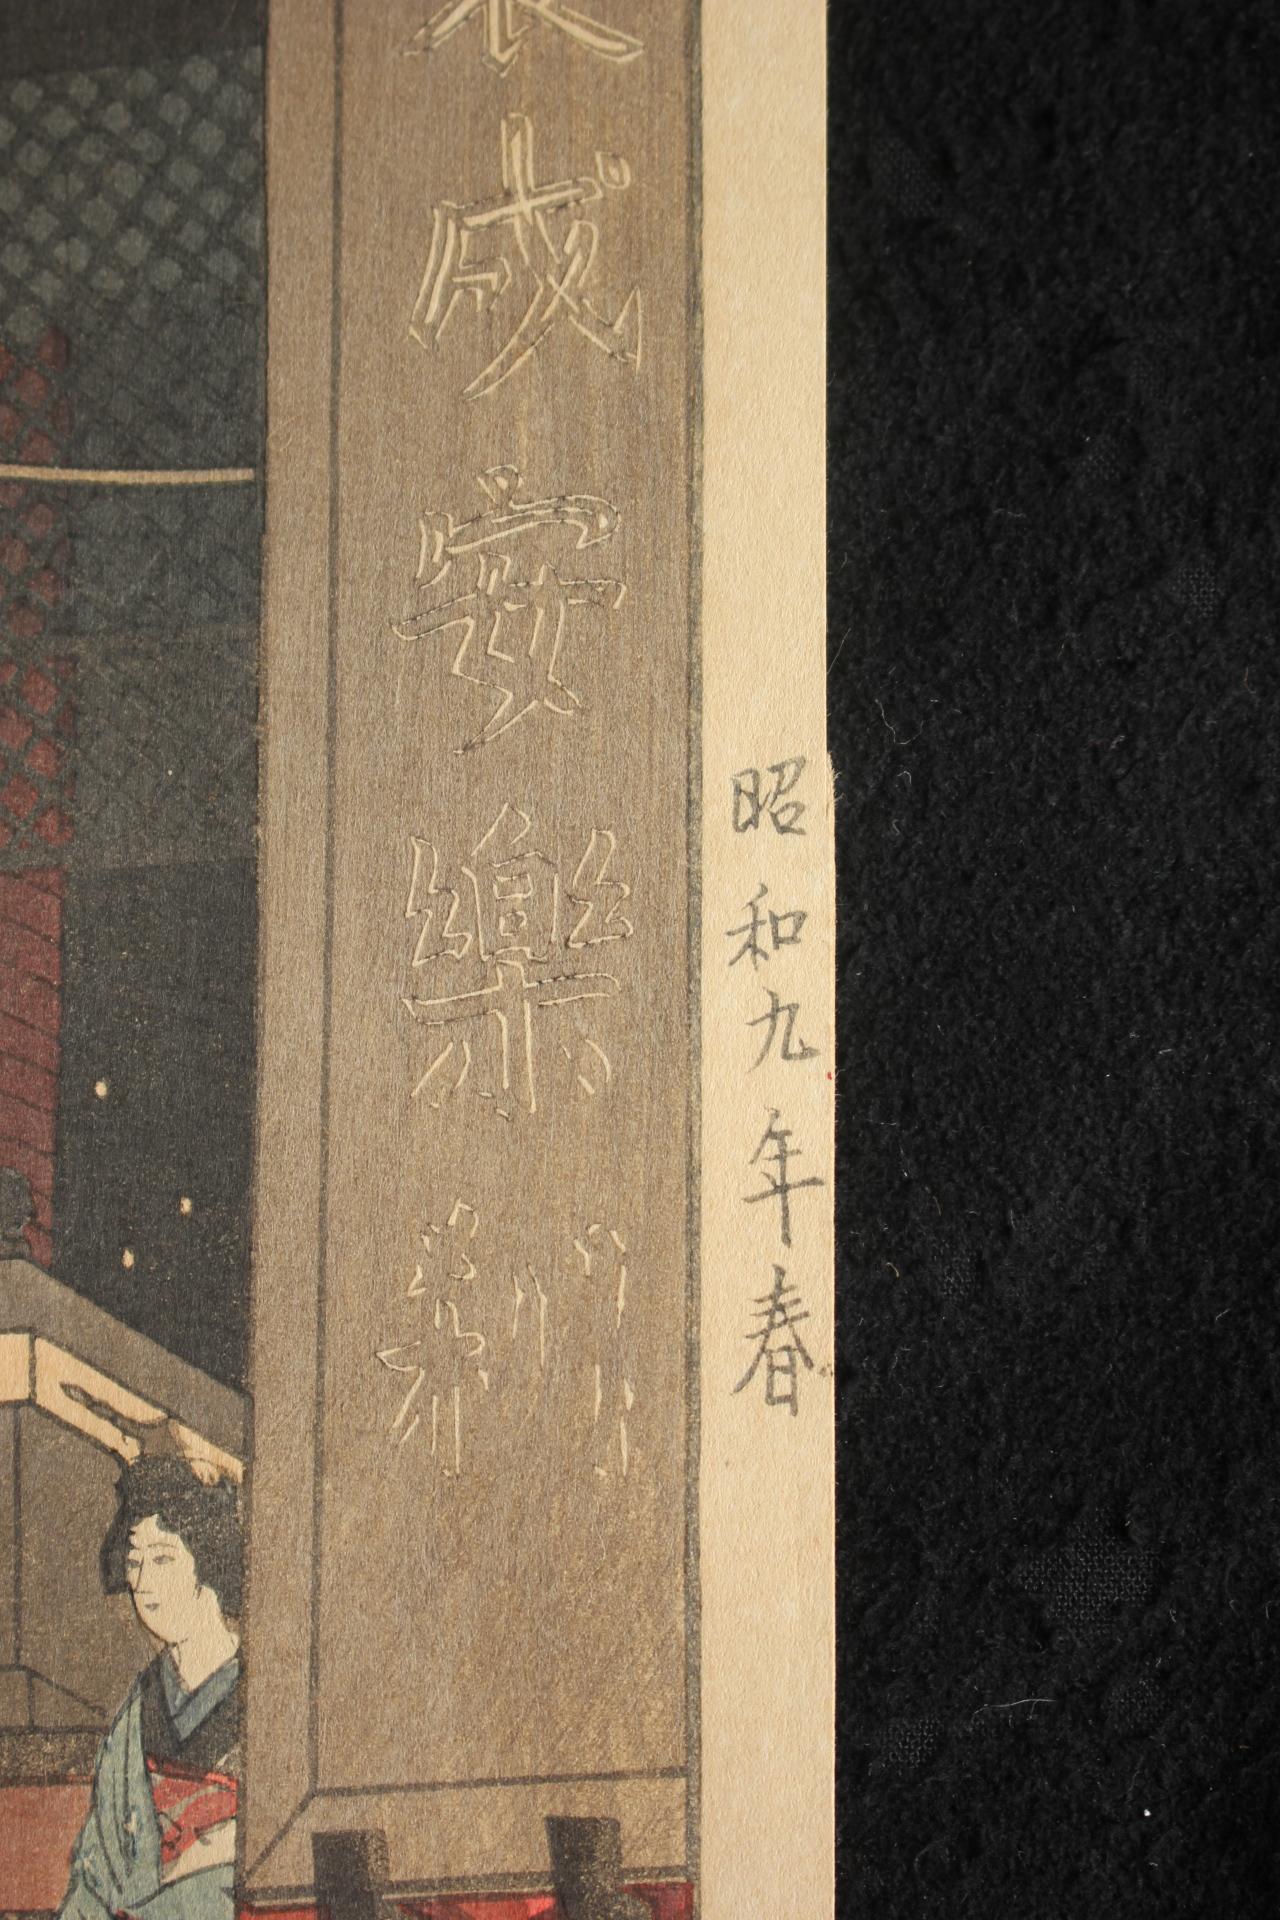 昭和九年春
成安樂刹